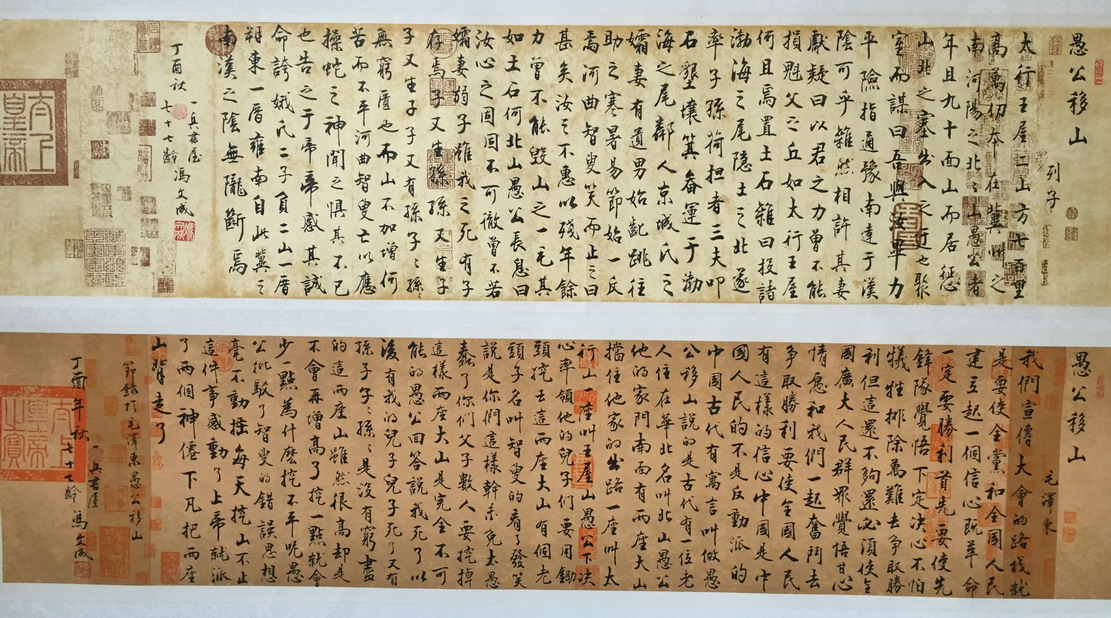 愚公移山
列子
太行王屋二山方七百里
高萬仞本在冀州之
南河陽之北北山愚公者
年且九十面山而居懲
山北之塞出入之迂也聚
室而謀曰吾與汝畢力
平險指通豫南達于漢
陰可乎雜然相許其妻
獻疑曰以君之力曾不能
損魁父之丘如太行王屋
何且焉置土石雜曰投諸
渤海之尾隱土之北遂
率子孫荷担者三夫叩
石墾壤箕畚運于渤
海之尾鄰人京城氏之
孀妻有遺男始齔跳往
助之寒暑易節始一反
焉河曲智叟笑而止之曰
甚矣汝之不惠以殘年餘
力曾不能毀山之一毛其
如土石何北山愚公長息曰
汝心之固固不可徹曾不若
孀妻弱子雖我之死有子
存焉子又生孫孫又生子
子又生子子又有孫子々孫々
無窮匱也而山不加增何
苦而不平河曲智叟亡以應
操蛇之神聞之懼其不已
也告之于帝帝感其誠
命誇娥氏二子負二山一厝
朔東一厝雍南自此冀之
南漢之陰無隴斷焉
一兵書屋
丁酉秋
七十七齡馮文成
愚公移山
毛澤東
我們宣傳大會的路线就
是要使全黨和全國人民
建立起一個信心既革命
一定要勝利首先要使先
鋒隊覺悟下定決心不怕
犧牲排除萬難去爭取勝
利但這還不夠還必須使全
國廣大人民群眾覺悟甘心
情愿和我們一起奮鬥去
爭取勝利要使全國人民
有這樣的信心中國是中
國人民的不是反動派的
中國古代有寓言叫做愚
公移山說的是古代有一位老
人住在華北名叫北山愚公
他的家門南面有两座大山
擋住他家的出路一座叫太
行山一座叫王屋山愚公下決
心率領他的兒子們要用鋤
頭挖去這兩座大山有個老
頭子名叫智叟的看了發笑
說是你們這樣幹未免太愚
蠢了你們父子數人要挖掉
這樣两座大山是完全不可
能的愚公回答說我死了以
後有我的兒子兒子死了又有
孫子子々孫々是沒有窮盡
的這两座山雖然很高却是
不會再增高了挖一點就會
少一點為什麼挖不平呢愚
公批駁了智叟的錯誤思想
毫不動摇每天挖山不止
這件事感動了上帝就派
了两個神僊下凡把两座
山背走了
節錄於毛澤東愚公移山
一兵書屋
丁酉年秋七十七齡馮文成